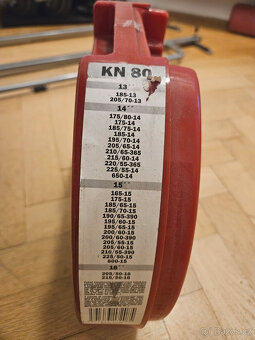 KN 80
13"
185-13
205/70-13
14"
175/80-14
175-14
185/75-14
185-14
195/70-14
205/65-14
210/65-365
215/60-14
220/55-365
225/55-14
650-14
15"
165-15
175-15
185/65-15
185/70-15
190/65-390
195/60-15
195/65-15
200/60-15
200/60-390
205/55-15
205/60-15
210/55-390
225/50-15
600-15
16"
205/50-16
215/50-16